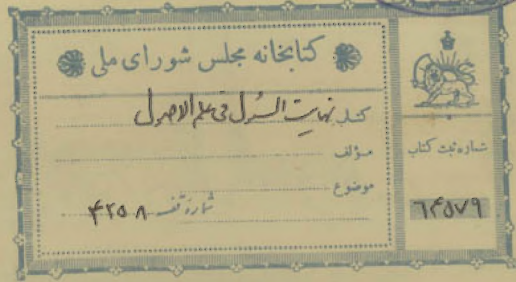 کتابخانه مجلس شورای ملی
کتاب نهایت السؤل فی علم الاصول
مؤلف
موضوع
شماره قفسه ۴۲۵۸
شماره ثبت کتاب
۶۴۵۷۹